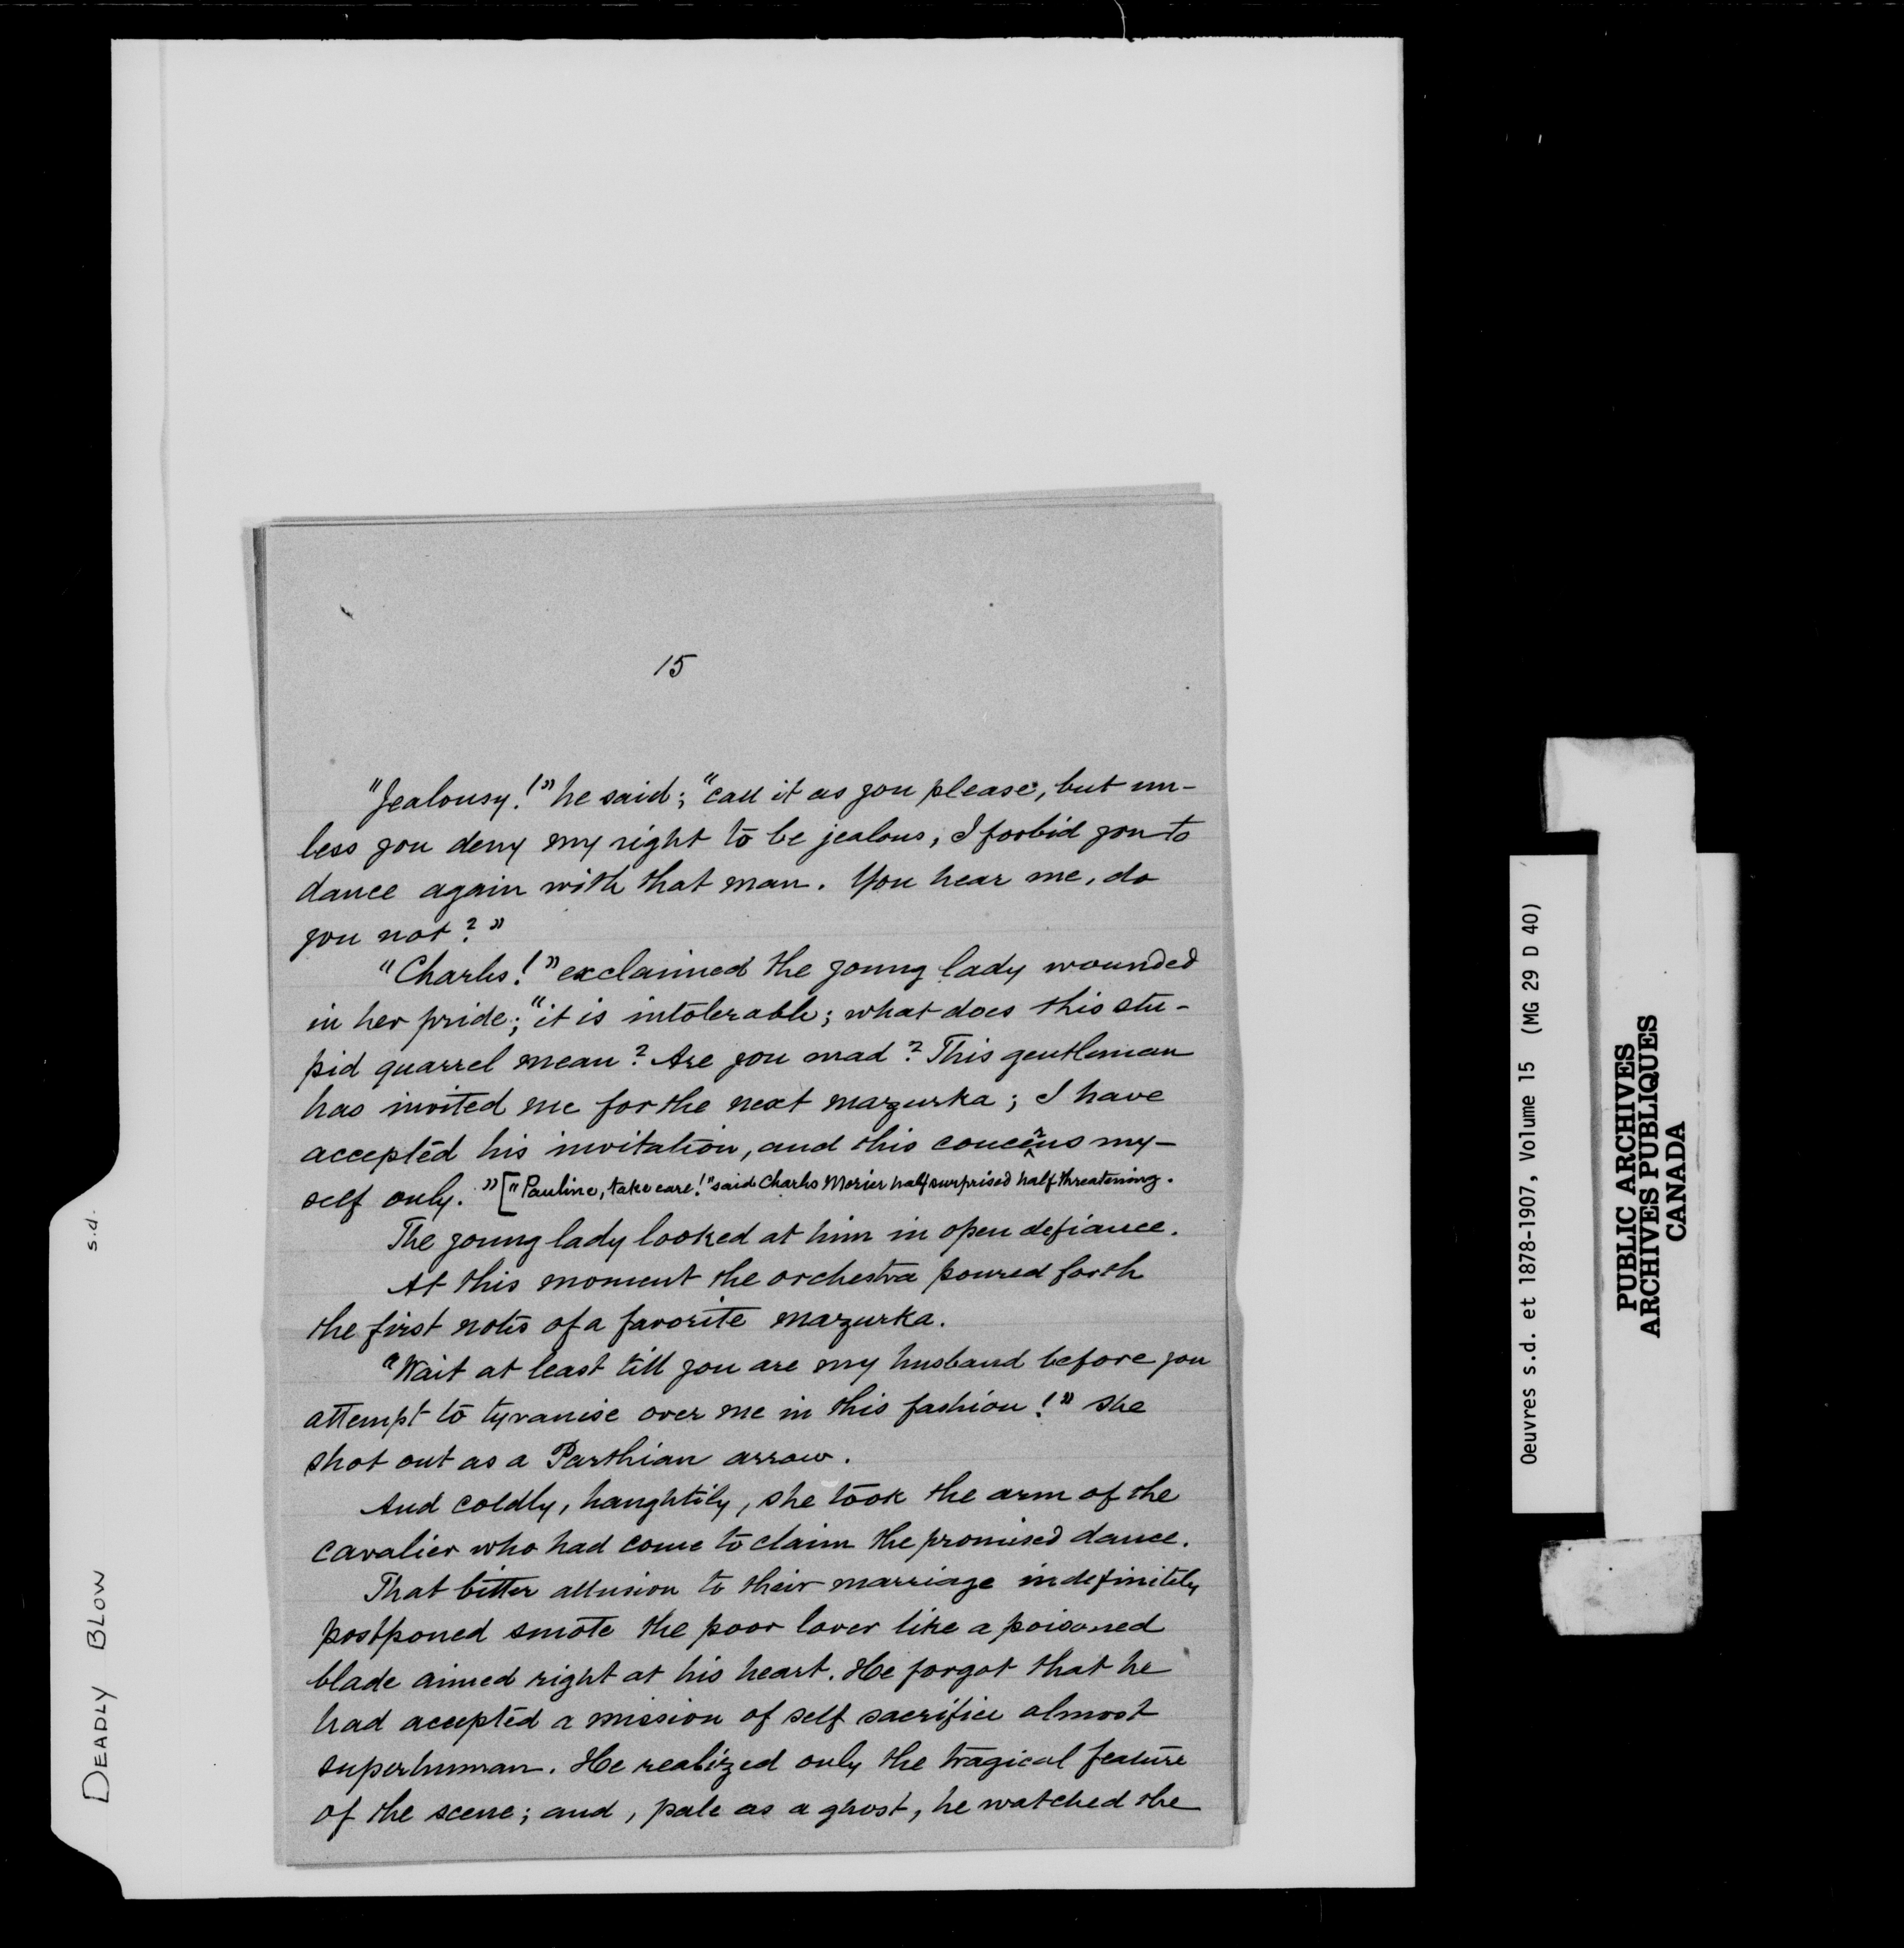 15
"Jealousy!" he said; "call it as you please, but un-
less you deny my right to be jealous, I forbid you to
dance again with that man. You hear me, do
you not?"
"Charles!" exclaimed the young lady wounded
in her pride; "it is intolerable; what does this stu-
pid quarrel mean? Are you mad? This gentleman
has invited me for the next mazurka; I have
accepted his invitation, and this concerns my-
self only." ["Pauline, take care!" said Charles Morier half surprised half threatening.
The young lady looked at him in open defiance.
At this moment the orchestra poured forth
the first notes of a favorite mazurka.
"Wait at least till you are my husband before you
attempt to tyranise over me in this fashion!" she
shot out as a Parthian arrow.
And coldly, haughtily, she took the arm of the
cavalier who had come to claim the promised dance.
That bitter allusion to their marriage indefinitely
postponed smote the poor lover like a poisoned
blade aimed right at his heart. He forgot that he
had accepted a mission of self sacrifice almost
superhuman. He realized only the tragical feature
of the scene; and, pale as a ghost, he watched the
DEADLY BLOW s.d.
Oeuvres s.d. et 1878-1907, Volume 15 (MG 29 D 40)
PUBLIC ARCHIVES
ARCHIVES PUBLIQUES
CANADA